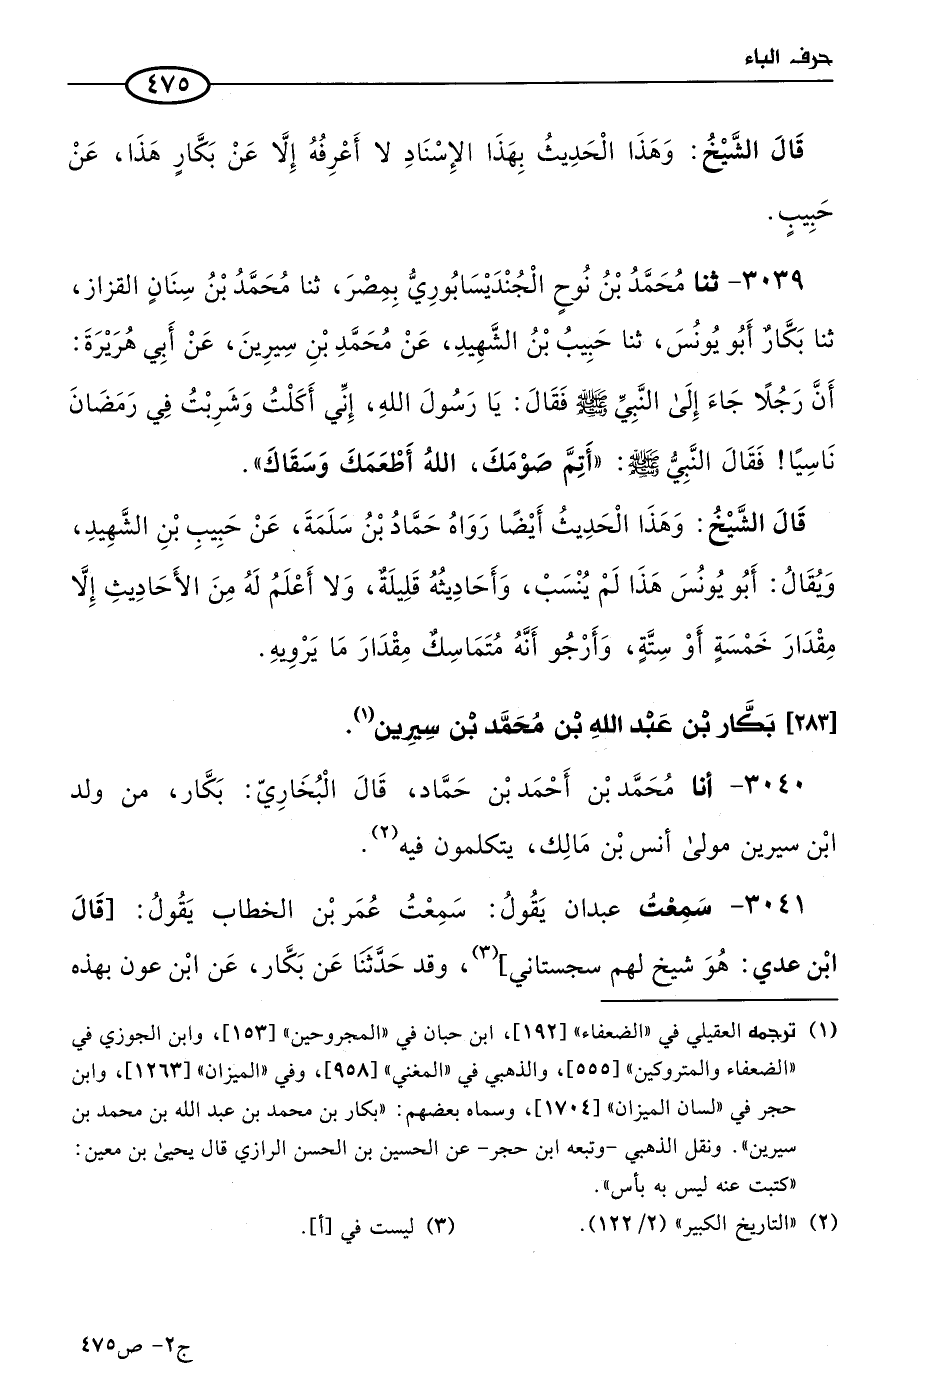 حرف الباء
٤٧٥
قَالَ الشَّيْخُ: وَهَذَا الْحَدِيثُ بِهَذَا الإِسْنَادِ لا أَعْرِفُهُ إِلَّا عَنْ بَكَّارٍ هَذَا، عَنْ
حَبِيبٍ.
٣٠٣٩- ثنا مُحَمَّدُ بْنُ نُوحٍ الْجُنْدَيْسَابُورِيُّ بِمِصْرَ، ثنا مُحَمَّدُ بْنُ سِنَانٍ القزاز،
ثنا بَكَّارٌ أَبُو يُونُسَ، ثنا حَبِيبُ بْنُ الشَّهِيدِ، عَنْ مُحَمَّدِ بْنِ سِيرِينَ، عَنْ أَبِي هُرَيْرَةَ:
أَنَّ رَجُلًا جَاءَ إِلَىٰ النَّبِيِّ ﷺ فَقَالَ: يَا رَسُولَ اللهِ، إِنِّي أَكَلْتُ وَشَرِبْتُ فِي رَمَضَانَ
نَاسِيًا! فَقَالَ النَّبِيُّ ﷺ: «أَتِمَّ صَوْمَكَ، اللهُ أَطْعَمَكَ وَسَقَاكَ».
قَالَ الشَّيْخُ: وَهَذَا الْحَدِيثُ أَيْضًا رَوَاهُ حَمَّادُ بْنُ سَلَمَةَ، عَنْ حَبِيبِ بْنِ الشَّهِيدِ،
وَيُقَالُ: أَبُو يُونُسَ هَذَا لَمْ يُنْسَبْ، وَأَحَادِيثُهُ قَلِيلَةٌ، وَلا أَعْلَمُ لَهُ مِنَ الأَحَادِيثِ إِلَّا
مِقْدَارَ خَمْسَةٍ أَوْ سِتَّةٍ، وَأَرْجُو أَنَّهُ مُتَمَاسِكٌ مِقْدَارَ مَا يَرْوِيهِ.
[٢٨٣] بَكَّار بْن عَبْد اللهِ بْن مُحَمَّد بْن سِيرِين(١).
٣٠٤٠- أنا مُحَمَّد بْن أَحْمَد بْن حَمَّاد، قَالَ الْبُخَارِيّ: بَكَّار، من ولد
ابْن سيرين مولىٰ أنس بْن مَالِك، يتكلمون فيه(٢).
٣٠٤١- سَمِعْتُ عبدان يَقُولُ: سَمِعْتُ عُمَر بْن الخطاب يَقُولُ: [قَالَ
ابْن عدي: هُوَ شيخ لهم سجستاني](٣)، وقد حَدَّثَنَا عَن بَكَّار، عَن ابْن عون بهذه
(١) ترجمه العقيلي في «الضعفاء» [١٩٢]، ابن حبان في «المجروحين» [١٥٣]، وابن الجوزي في
«الضعفاء والمتروكين» [٥٥٥]، والذهبي في «المغني» [٩٥٨]، وفي «الميزان» [١٢٦٣]، وابن
حجر في «لسان الميزان» [١٧٠٤]، وسماه بعضهم: «بكار بن محمد بن عبد الله بن محمد بن
سيرين». ونقل الذهبي -وتبعه ابن حجر- عن الحسين بن الحسن الرازي قال يحيىٰ بن معين:
«كتبت عنه ليس به بأس».
(٢) «التاريخ الكبير» (٢/ ١٢٢). (٣) ليست في [أ].
ج٢- ص٤٧٥